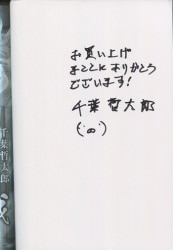 お買い上げ
まことにありがとう
ございます!
千葉 哲太郎
千葉哲太郎